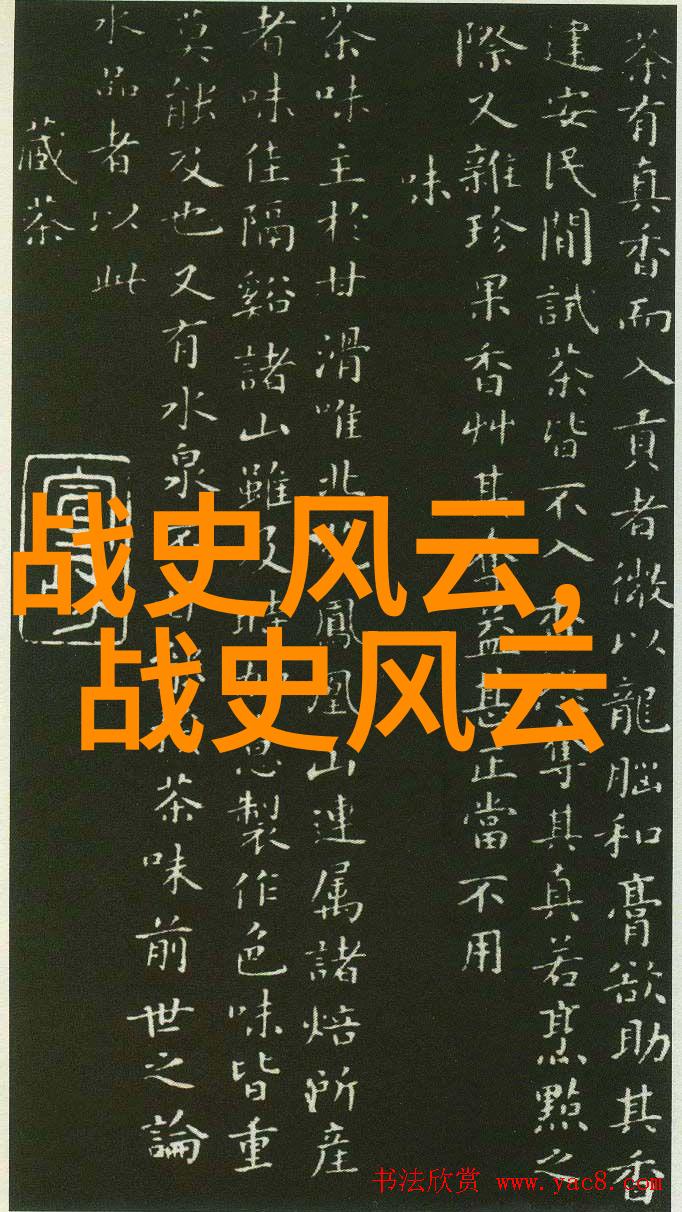 茶有真香而入貢者微以龍腦和膏欲助其香
建安民間試茶皆不入其真若烹點之
際又雜珍果香艸其奪益甚正當不用
味
茶味主於甘滑唯北鳳凰山連属諸焙所産
者味佳隔谿諸山雖及時意製作色味皆重
莫能及也又有水泉茶味前世之論
水品者以此
藏茶
战史风云,
战史风云
书法欣赏 www.yac8.com